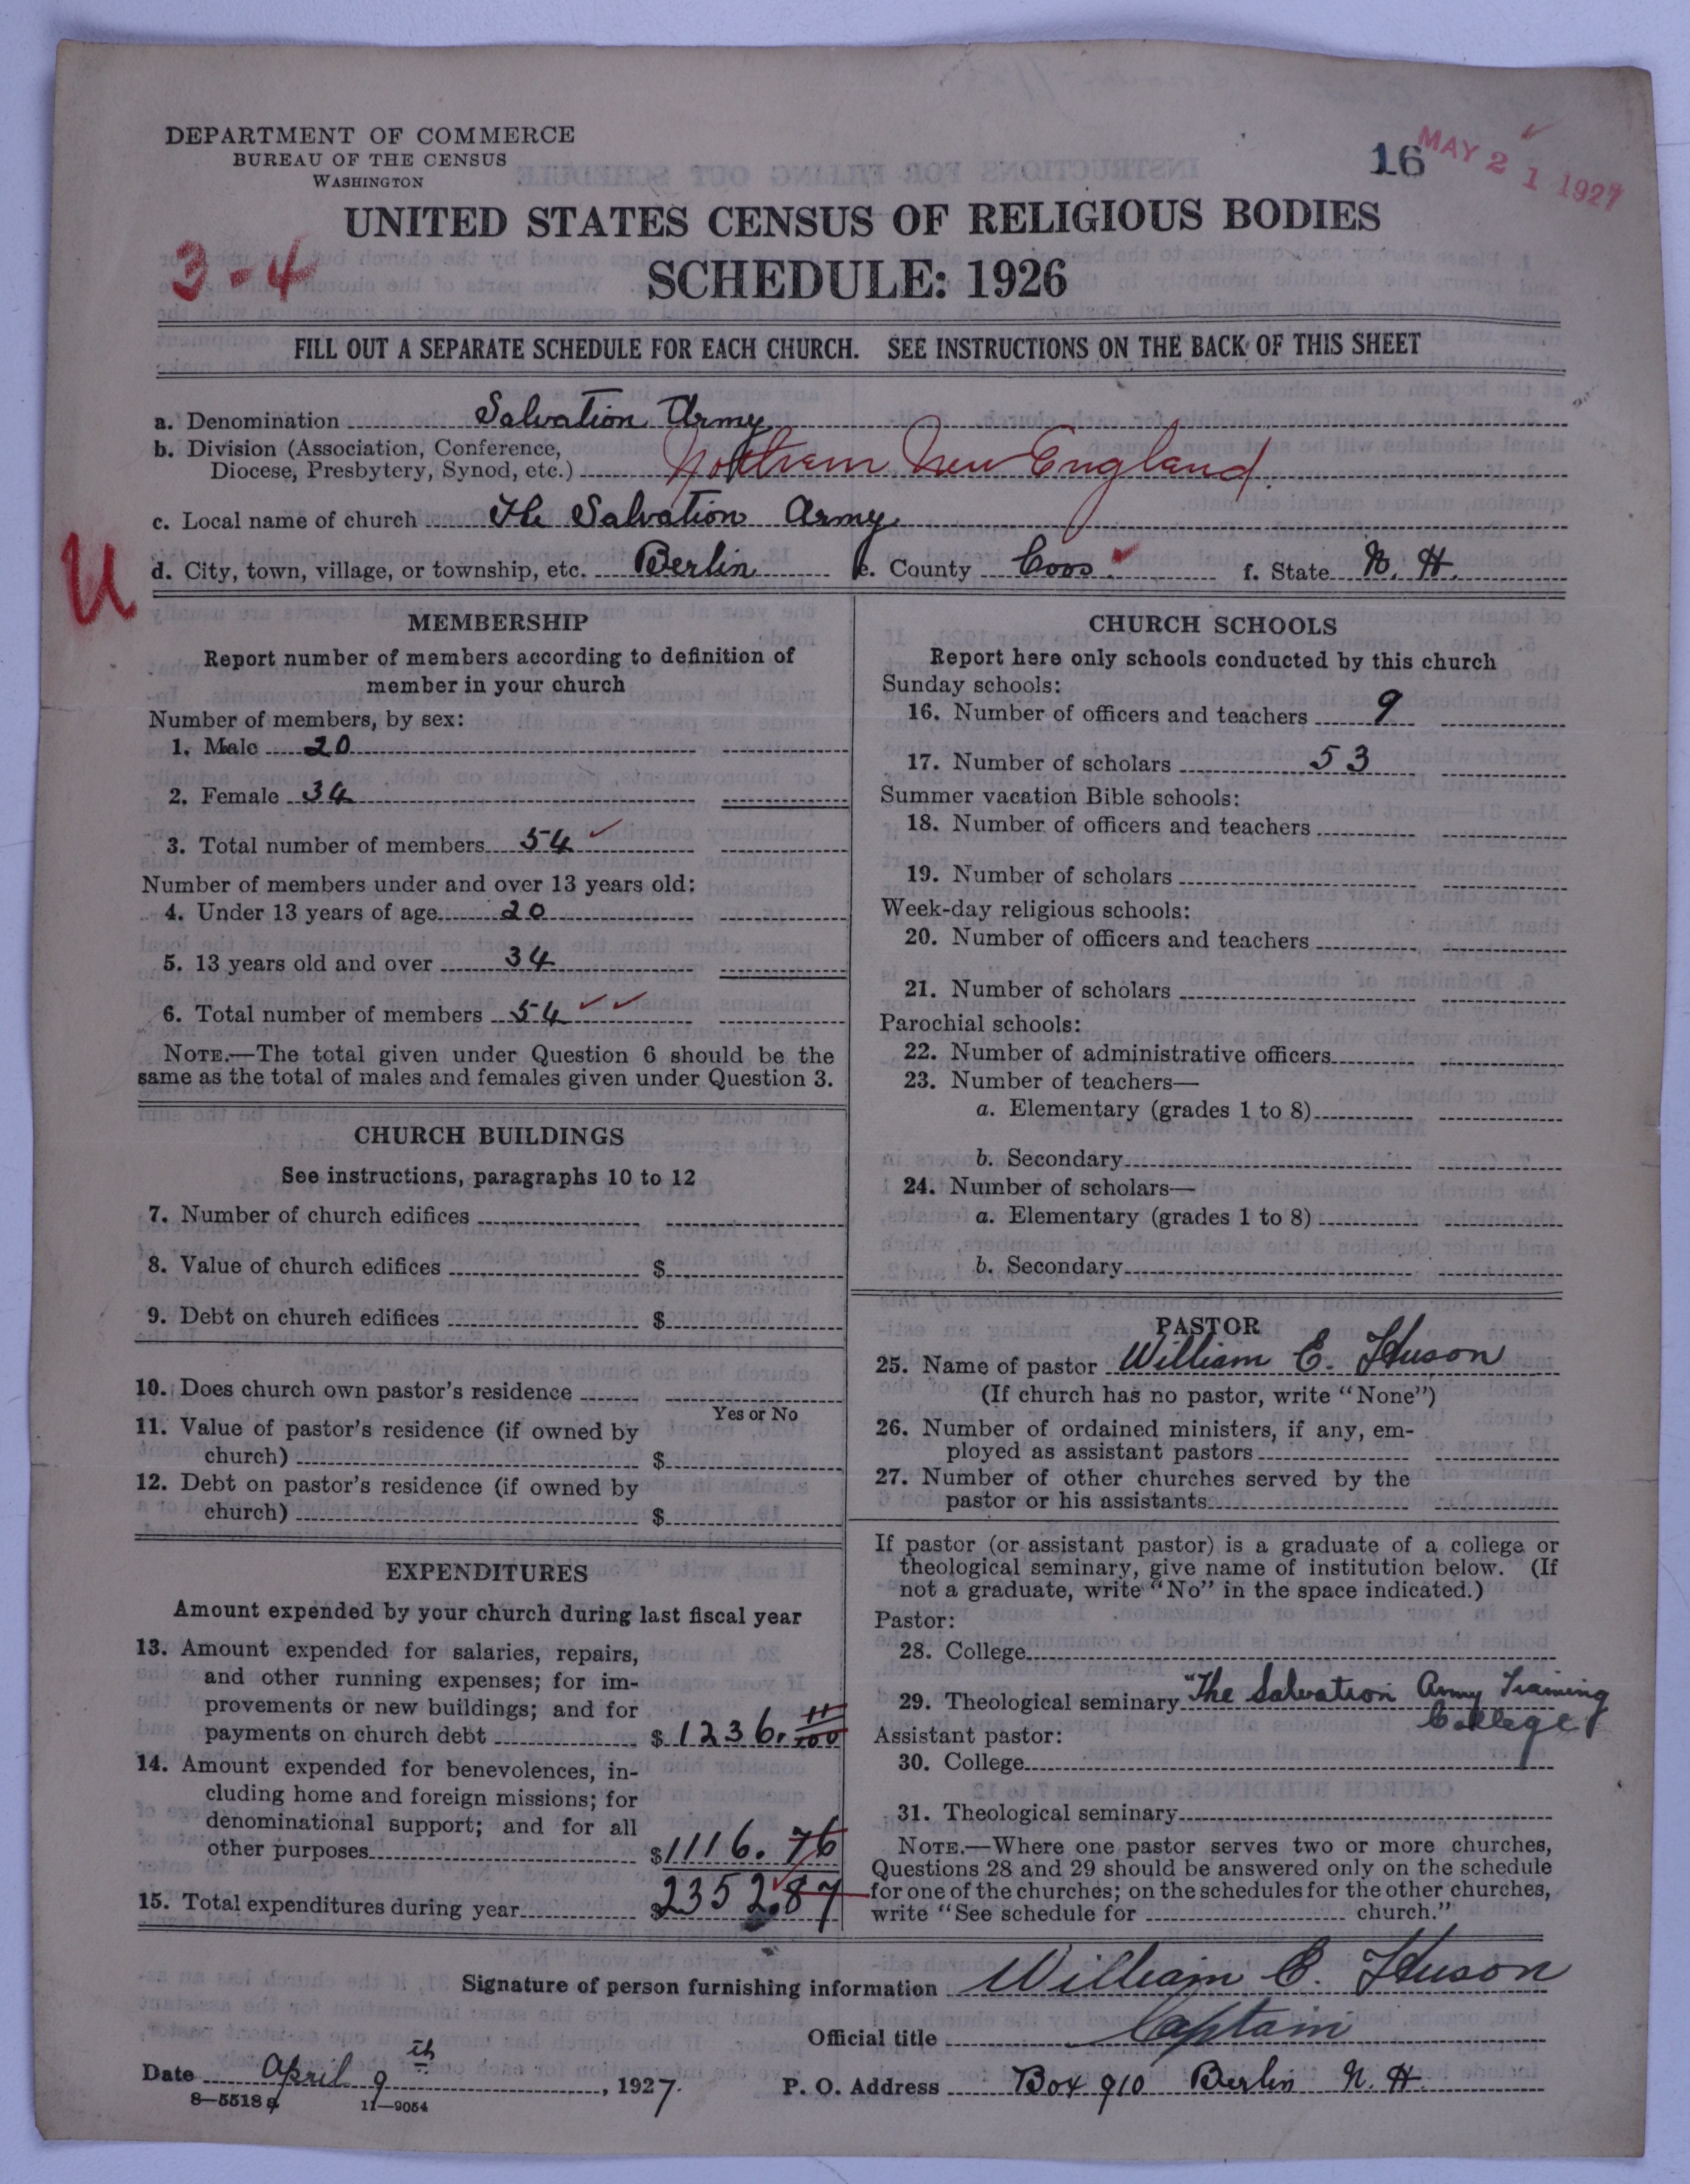 DEPARTMENT OF COMMERCE
BUREAU OF THE CENSUS
WASHINGTON
16
MAY 21 1927
UNITED STATES CENSUS OF RELIGIOUS BODIES
3-4
SCHEDULE: 1926
FILL OUT A SEPARATE SCHEDULE FOR EACH CHURCH. SEE INSTRUCTIONS ON THE BACK OF THIS SHEET
a. Denomination Salvation Army
b. Division (Association, Conference,
Diocese, Presbytery, Synod, etc.) Northern New England
c. Local name of church The Salvation Army
U
d. City, town, village, or township, etc. Berlin e. County Coos f. State N. H.
MEMBERSHIP
Report number of members according to definition of
member in your church
Number of members, by sex:
1. Male 20
2. Female 34
3. Total number of members 54
Number of members under and over 13 years old:
4. Under 13 years of age 20
5. 13 years old and over 34
6. Total number of members 54
NOTE.—The total given under Question 6 should be the
same as the total of males and females given under Question 3.
CHURCH BUILDINGS
See instructions, paragraphs 10 to 12
7. Number of church edifices
8. Value of church edifices $
9. Debt on church edifices $
10. Does church own pastor's residence
Yes or No
11. Value of pastor's residence (if owned by
church) $
12. Debt on pastor's residence (if owned by
church) $
EXPENDITURES
Amount expended by your church during last fiscal year
13. Amount expended for salaries, repairs,
and other running expenses; for im-
provements or new buildings; and for
payments on church debt $1236. 11/100
14. Amount expended for benevolences, in-
cluding home and foreign missions; for
denominational support; and for all
other purposes $1116. 76
15. Total expenditures during year $2352.87
CHURCH SCHOOLS
Report here only schools conducted by this church
Sunday schools:
16. Number of officers and teachers 9
17. Number of scholars 53
Summer vacation Bible schools:
18. Number of officers and teachers
19. Number of scholars
Week-day religious schools:
20. Number of officers and teachers
21. Number of scholars
Parochial schools:
22. Number of administrative officers
23. Number of teachers—
a. Elementary (grades 1 to 8)
b. Secondary
24. Number of scholars—
a. Elementary (grades 1 to 8)
b. Secondary
PASTOR
25. Name of pastor William E. Huson
(If church has no pastor, write "None")
26. Number of ordained ministers, if any, em-
ployed as assistant pastors
27. Number of other churches served by the
pastor or his assistants
If pastor (or assistant pastor) is a graduate of a college or
theological seminary, give name of institution below. (If
not a graduate, write "No" in the space indicated.)
Pastor:
28. College
29. Theological seminary "The Salvation Army Training
College
Assistant pastor:
30. College
31. Theological seminary
NOTE.—Where one pastor serves two or more churches,
Questions 28 and 29 should be answered only on the schedule
for one of the churches; on the schedules for the other churches,
write "See schedule for church."
Signature of person furnishing information William E. Huson
Official title Captain
Date April 9th, 1927. P. O. Address Box 910 Berlin N. H.
8—5518a 11—9054